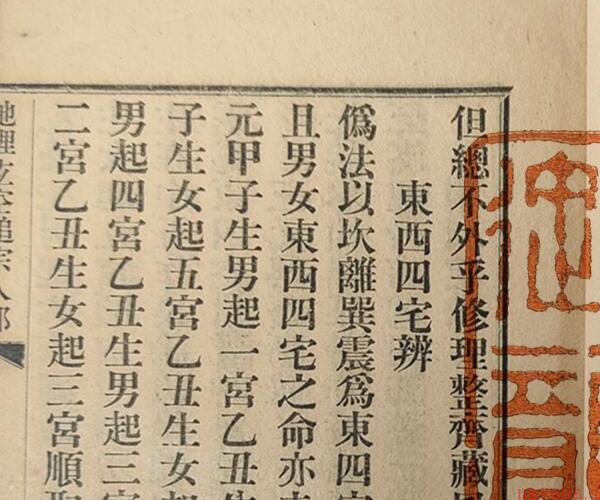 但總不外乎修理整齊藏
東西四宅辨
僞法以坎離巽震爲東四宅
且男女東西四宅之命亦
元甲子生男起一宮乙丑生
子生女起五宮乙丑生女起
男起四宮乙丑生男起三宮
二宮乙丑生女起三宮順
地理